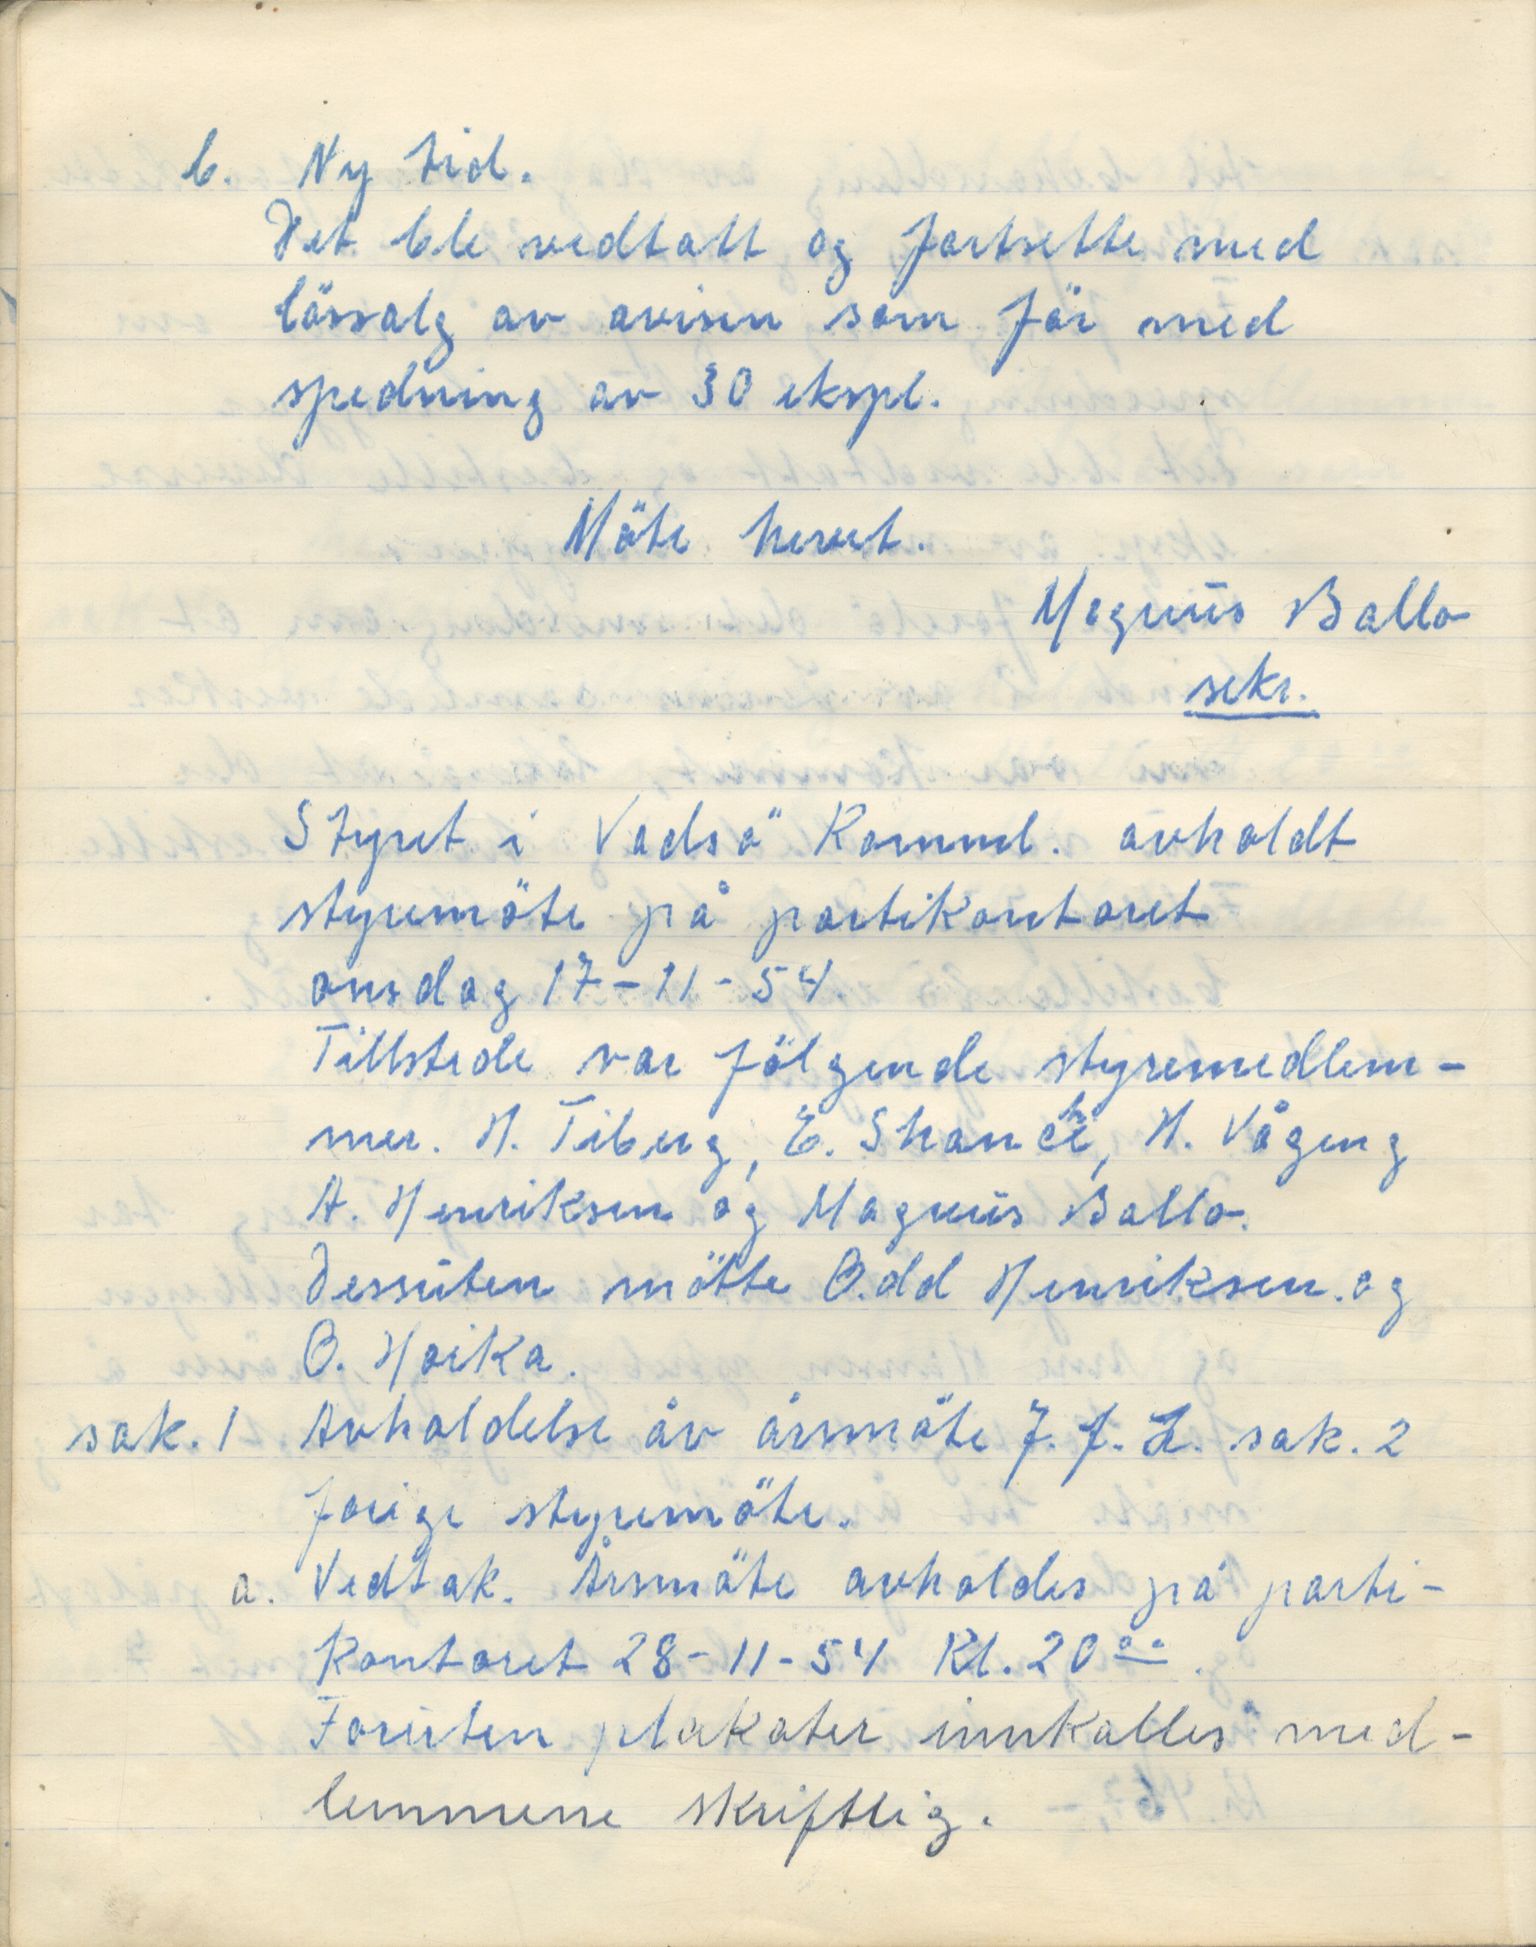 b. Ny tid.
Det ble vedtatt og fortsette med
lössalg av avisen som för med
spedning av 30 ekspl.
Möte hevet.
Magnus Ballo
sekr.
Styret i Vadsö Komml. avholdt
styremöte på partikontoret
onsdag 17-11-54.
Tillstede var fölgende styremedlem-
mer. H. Tiberg, E. Shanche, H. Vågeng
A. Henriksen og Magnus Ballo.
Dessuten mötte Odd Henriksen og
O. Hoika.
sak. 1 Avholdelse av årsmöte J. f. L. sak. 2
forige styremöte.
a. Vedtak. Årsmöte avholdes på parti-
kontoret 28-11-54 Kl. 20⁰⁰.
Foruten plakater innkalles med-
lemmene skriftlig.